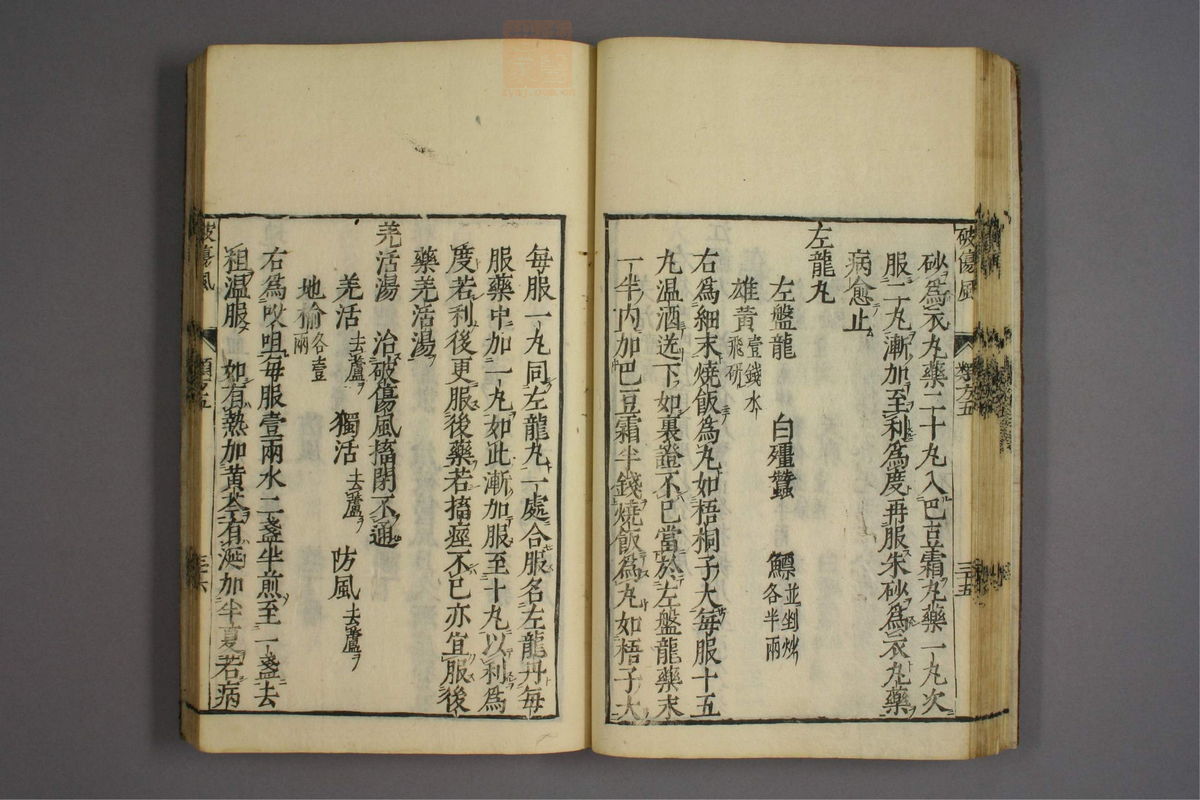 破傷風
類方五
三十五
砂爲衣丸藥二十丸入巴豆霜丸藥一丸次
服一丸漸加至利爲度再服朱砂爲衣丸藥
病愈止
左龍丸
左盤龍 白殭蠶 鰾並剉炒各半兩
雄黃壹錢水飛研
右爲細末燒飯爲丸如梧桐子大每服十五
丸温酒送下如裏證不已當於左盤龍藥末
一半內加巴豆霜半錢燒飯爲丸如梧子大
每服一丸同左龍丸一處合服名左龍丹每
服藥中加一丸如此漸加服至十丸以利爲
度若利後更服後藥若搐痙不已亦宜服後
藥羌活湯
羌活湯 治破傷風搐閉不通
羌活去蘆 獨活去蘆 防風去蘆
地榆各壹兩
右爲㕮咀每服壹兩水二盞半煎至一盞去
粗温服 如有熱加黃芩有涎加半夏若病
破傷風
類方五
三十六